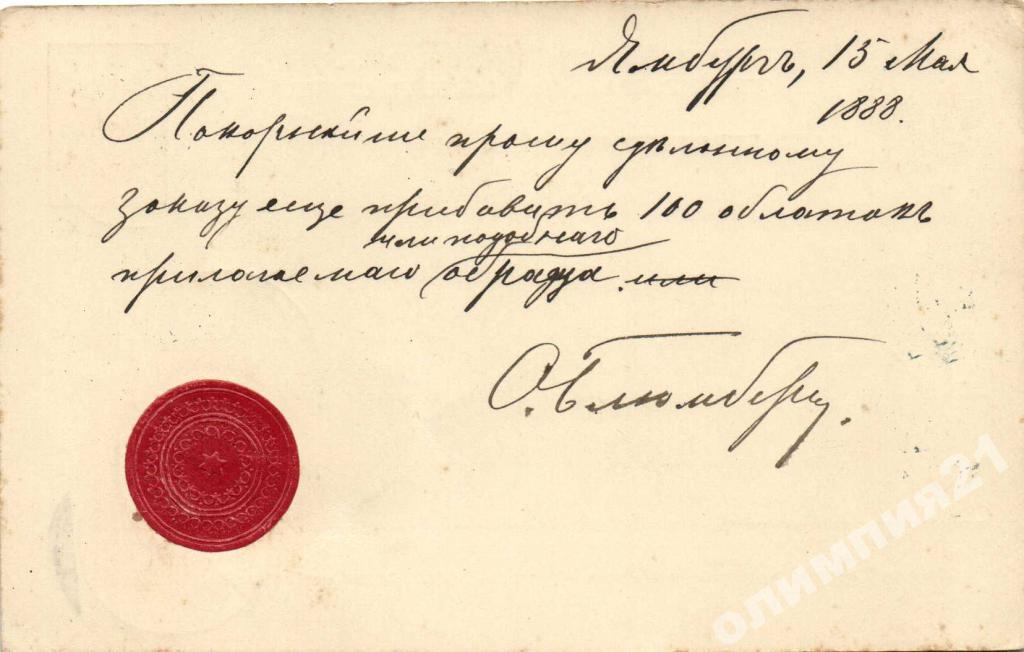 Ямбургъ, 15 Мая
1888.
Покорнѣйше прошу сдѣланному
заказу еще прибавить 100 облатокъ
или подобнаго
прилагаемаго образца. или
О. Блюмбергъ.
олимпия21